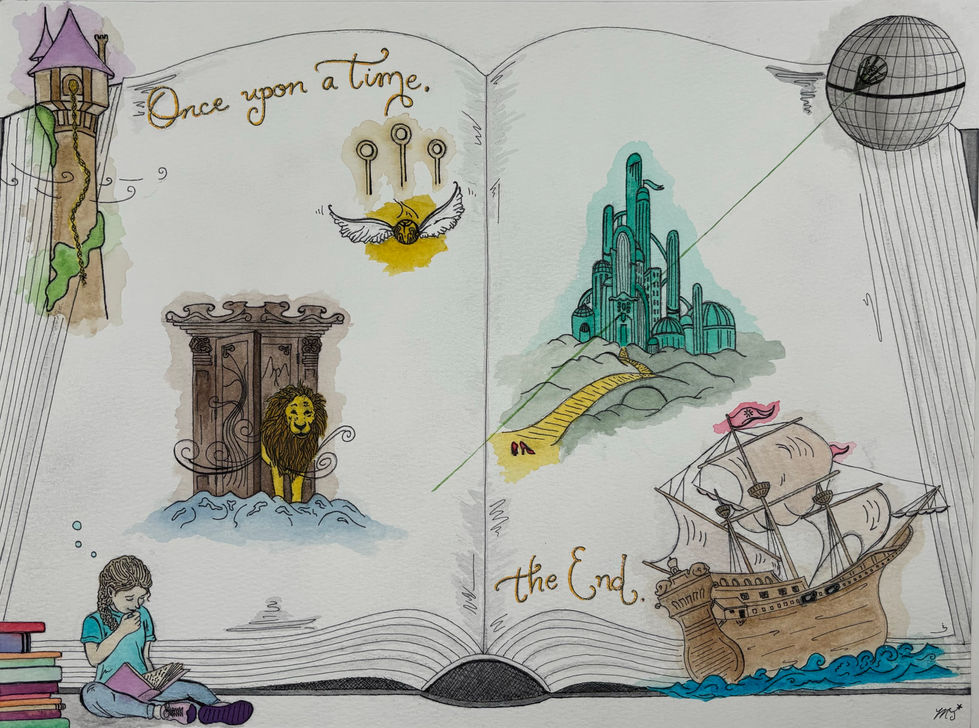 Once upon a time.
the End.